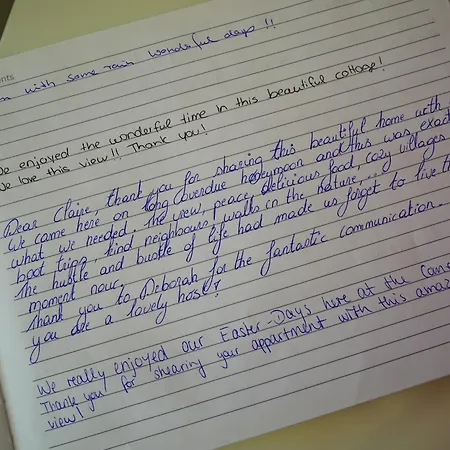 ents
n with some rain wonderful days !!
e enjoyed the wonderful time in this beautiful cottage!
e love this view!! Thank you!
Dear Claire, thank you for sharing this beautiful home with
We came here on long overdue honeymoon and this was exact
what we needed. The view, peace, delicious food, cozy villages
boat tripp, kind neighbours, walks in the nature, ...
the hustle and bustle of life had made us forget to live th
moment nour.
Thank you to Deborah for the fantastic communication.
you are a lovely host!
We really enjoyed our Easter-Days here at the Cana
Thank you for shearing your appartment with this amaz
view!